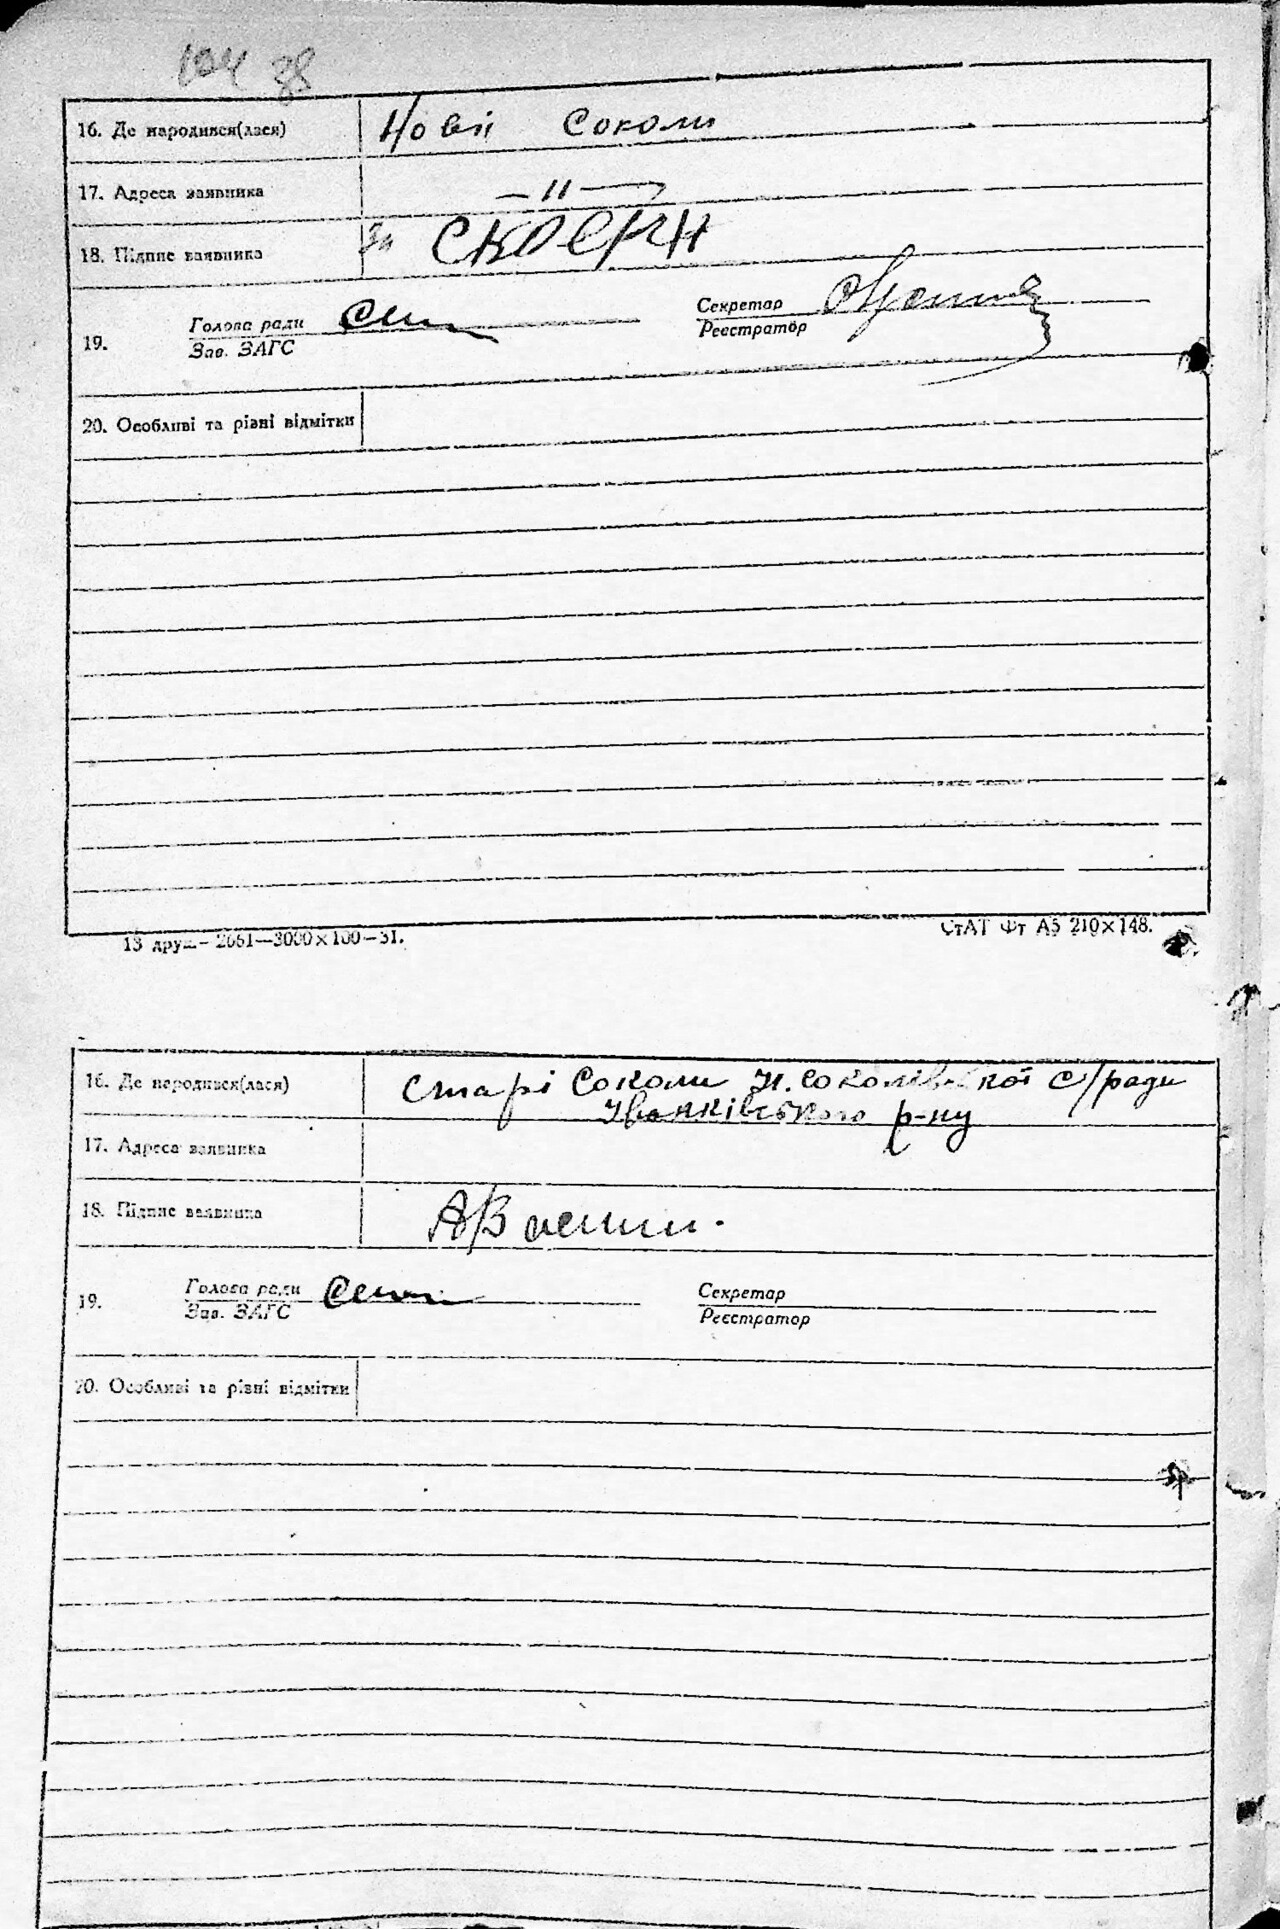 16. Де народився(лася) Нові Соколи
17. Адреса заявника —"—
18. Підпис заявника За
19. Голова ради Секретар
Зав. ЗАГС Реєстратор
20. Особливі та різні відмітки
13 друк.—2661—3000×100—31. СтАТ Фт А5 210×148.
16. Де народився(лася) Старі Соколи Н. Соколівської с/ради
Іванківського р-ну
17. Адреса заявника
18. Підпис заявника
19. Голова ради Секретар
Зав. ЗАГС Реєстратор
20. Особливі та різні відмітки